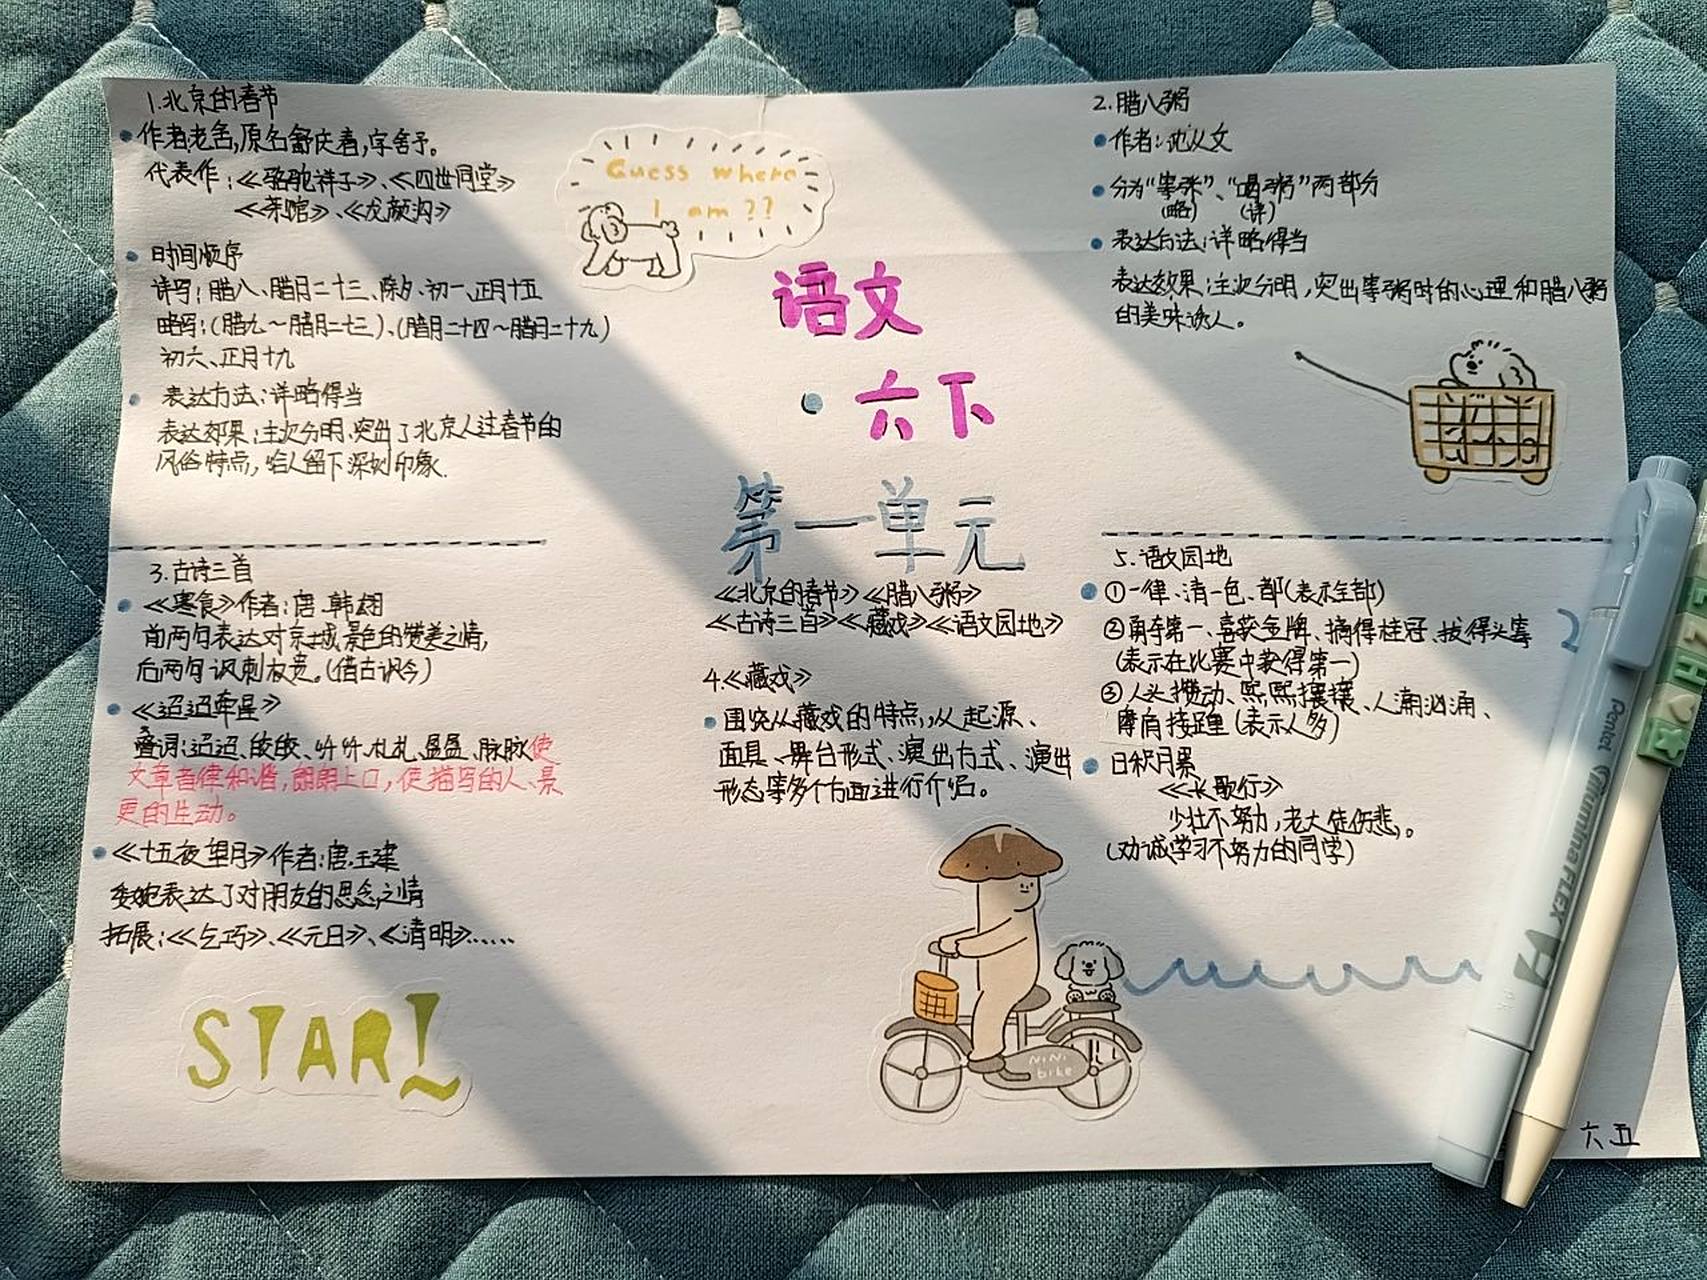 1.北京的春节
作者:老舍,原名舒庆春,字舍予。
代表作:《骆驼祥子》、《四世同堂》
《茶馆》、《龙须沟》
时间顺序
详写:腊八、腊月二十三、除夕、初一、正月十五
略写:(腊九～腊月二十三)、(腊月二十四～腊月二十九)
初六、正月十九
表达方法:详略得当
表达效果:主次分明,突出了北京人过春节的
风俗特点,给人留下深刻印象.
Guess where
I am??
语文
·六下
第一单元
《北京的春节》《腊八粥》
《古诗三首》《藏戏》《语文园地》
2.腊八粥
作者:沈从文
分为“等粥”、“喝粥”两部分
(略) (详)
表达方法:详略得当
表达效果:主次分明,突出等粥时的心理和腊八粥
的美味诱人。
3.古诗三首
《寒食》作者:唐.韩翃
前两句表达对京城景色的赞美之情,
后两句讽刺权贵。(借古讽今)
《迢迢牵牛星》
叠词:迢迢、皎皎、纤纤、札札、盈盈、脉脉使
文章音律和谐,朗朗上口,使描写的人、景
更的生动。
《十五夜望月》作者:唐.王建
委婉表达了对朋友的思念之情
拓展:《乞巧》、《元日》、《清明》......
START
4.《藏戏》
围绕从藏戏的特点,从起源、
面具、舞台形式、演出方式、演出
形态等多个方面进行介绍。
NiNi
bike
5.语文园地
①一律、清一色、都(表示全部)
②勇夺第一、喜获金牌、摘得桂冠、拔得头筹
(表示在比赛中获得第一)
③人头攒动、熙熙攘攘、人潮汹涌、
摩肩接踵(表示人多)
日积月累
《长歌行》
少壮不努力,老大徒伤悲。
(劝诫学习不努力的同学)
Pentel illumina FLEX
六五